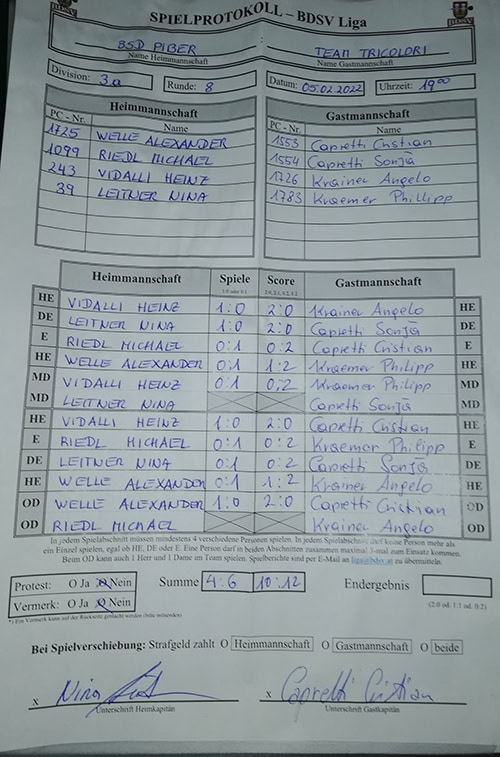 SPIELPROTOKOLL – BDSV Liga
BSD PIBER TEAM TRICOLORI
Name Heimmannschaft Name Gastmannschaft
Division: 3.a Runde: 8 Datum: 05.02.2022 Uhrzeit: 19:00
Heimmannschaft Gastmannschaft
PC - Nr. Name PC - Nr. Name
1725 WELLE ALEXANDER 1553 Capretti Cristian
1099 RIEDL MICHAEL 1554 Capretti Sonja
243 VIDALLI HEINZ 1726 Krainer Angelo
39 LEITNER NINA 1783 Kraemer Phillipp
Heimmannschaft Spiele Score Gastmannschaft
1:0 oder 0:1 2:0, 2:1, 0:2, 1:2
HE VIDALLI HEINZ 1:0 2:0 Krainer Angelo HE
DE LEITNER NINA 1:0 2:0 Capretti Sonja DE
E RIEDL MICHAEL 0:1 0:2 Capretti Cristian E
HE WELLE ALEXANDER 0:1 1:2 Kraemer Philipp HE
MD VIDALLI HEINZ 0:1 0:2 Kraemer Philipp MD
MD LEITNER NINA Capretti Sonja MD
HE VIDALLI HEINZ 1:0 2:0 Capretti Cristian HE
E RIEDL MICHAEL 0:1 0:2 Kraemer Philipp E
DE LEITNER NINA 0:1 0:2 Capretti Sonja DE
HE WELLE ALEXANDER 0:1 1:2 Krainer Angelo HE
OD WELLE ALEXANDER 1:0 2:0 Capretti Cristian OD
OD RIEDL MICHAEL Krainer Angelo OD
In jedem Spielabschnitt müssen mindestens 4 verschiedene Personen spielen. In jedem Spielabschnitt darf keine Person mehr als
ein Einzel spielen, egal ob HE, DE oder E. Eine Person darf in beiden Abschnitten zusammen maximal 3-mal zum Einsatz kommen.
Beim OD kann auch 1 Herr und 1 Dame im Team spielen. Spielberichte sind per E-Mail an liga@bdsv.at zu übermitteln.
Protest: O Ja O Nein Summe 4:6 10:12 Endergebnis
Vermerk: O Ja O Nein (2:0 od. 1:1 od. 0:2)
*) Ein Vermerk kann auf der Rückseite gemacht werden (bitte
Bei Spielverschiebung: Strafgeld zahlt O Heimmannschaft O Gastmannschaft O beide
x Nina x Capretti Cristian
Unterschrift Heimkapitän Unterschrift Gastkapitän